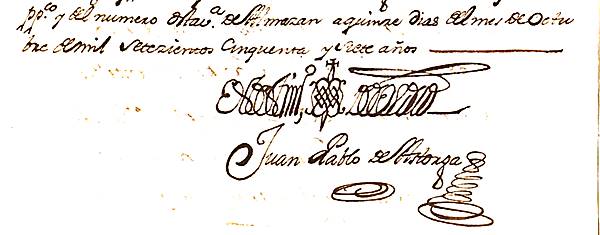 pp.co y del numero desta v.a de Almazan a quinze dias del mes de Octu
bre de mil setezientos Cinquenta y siete años
En testim.o de Verdad
Juan Pablo de Astorga